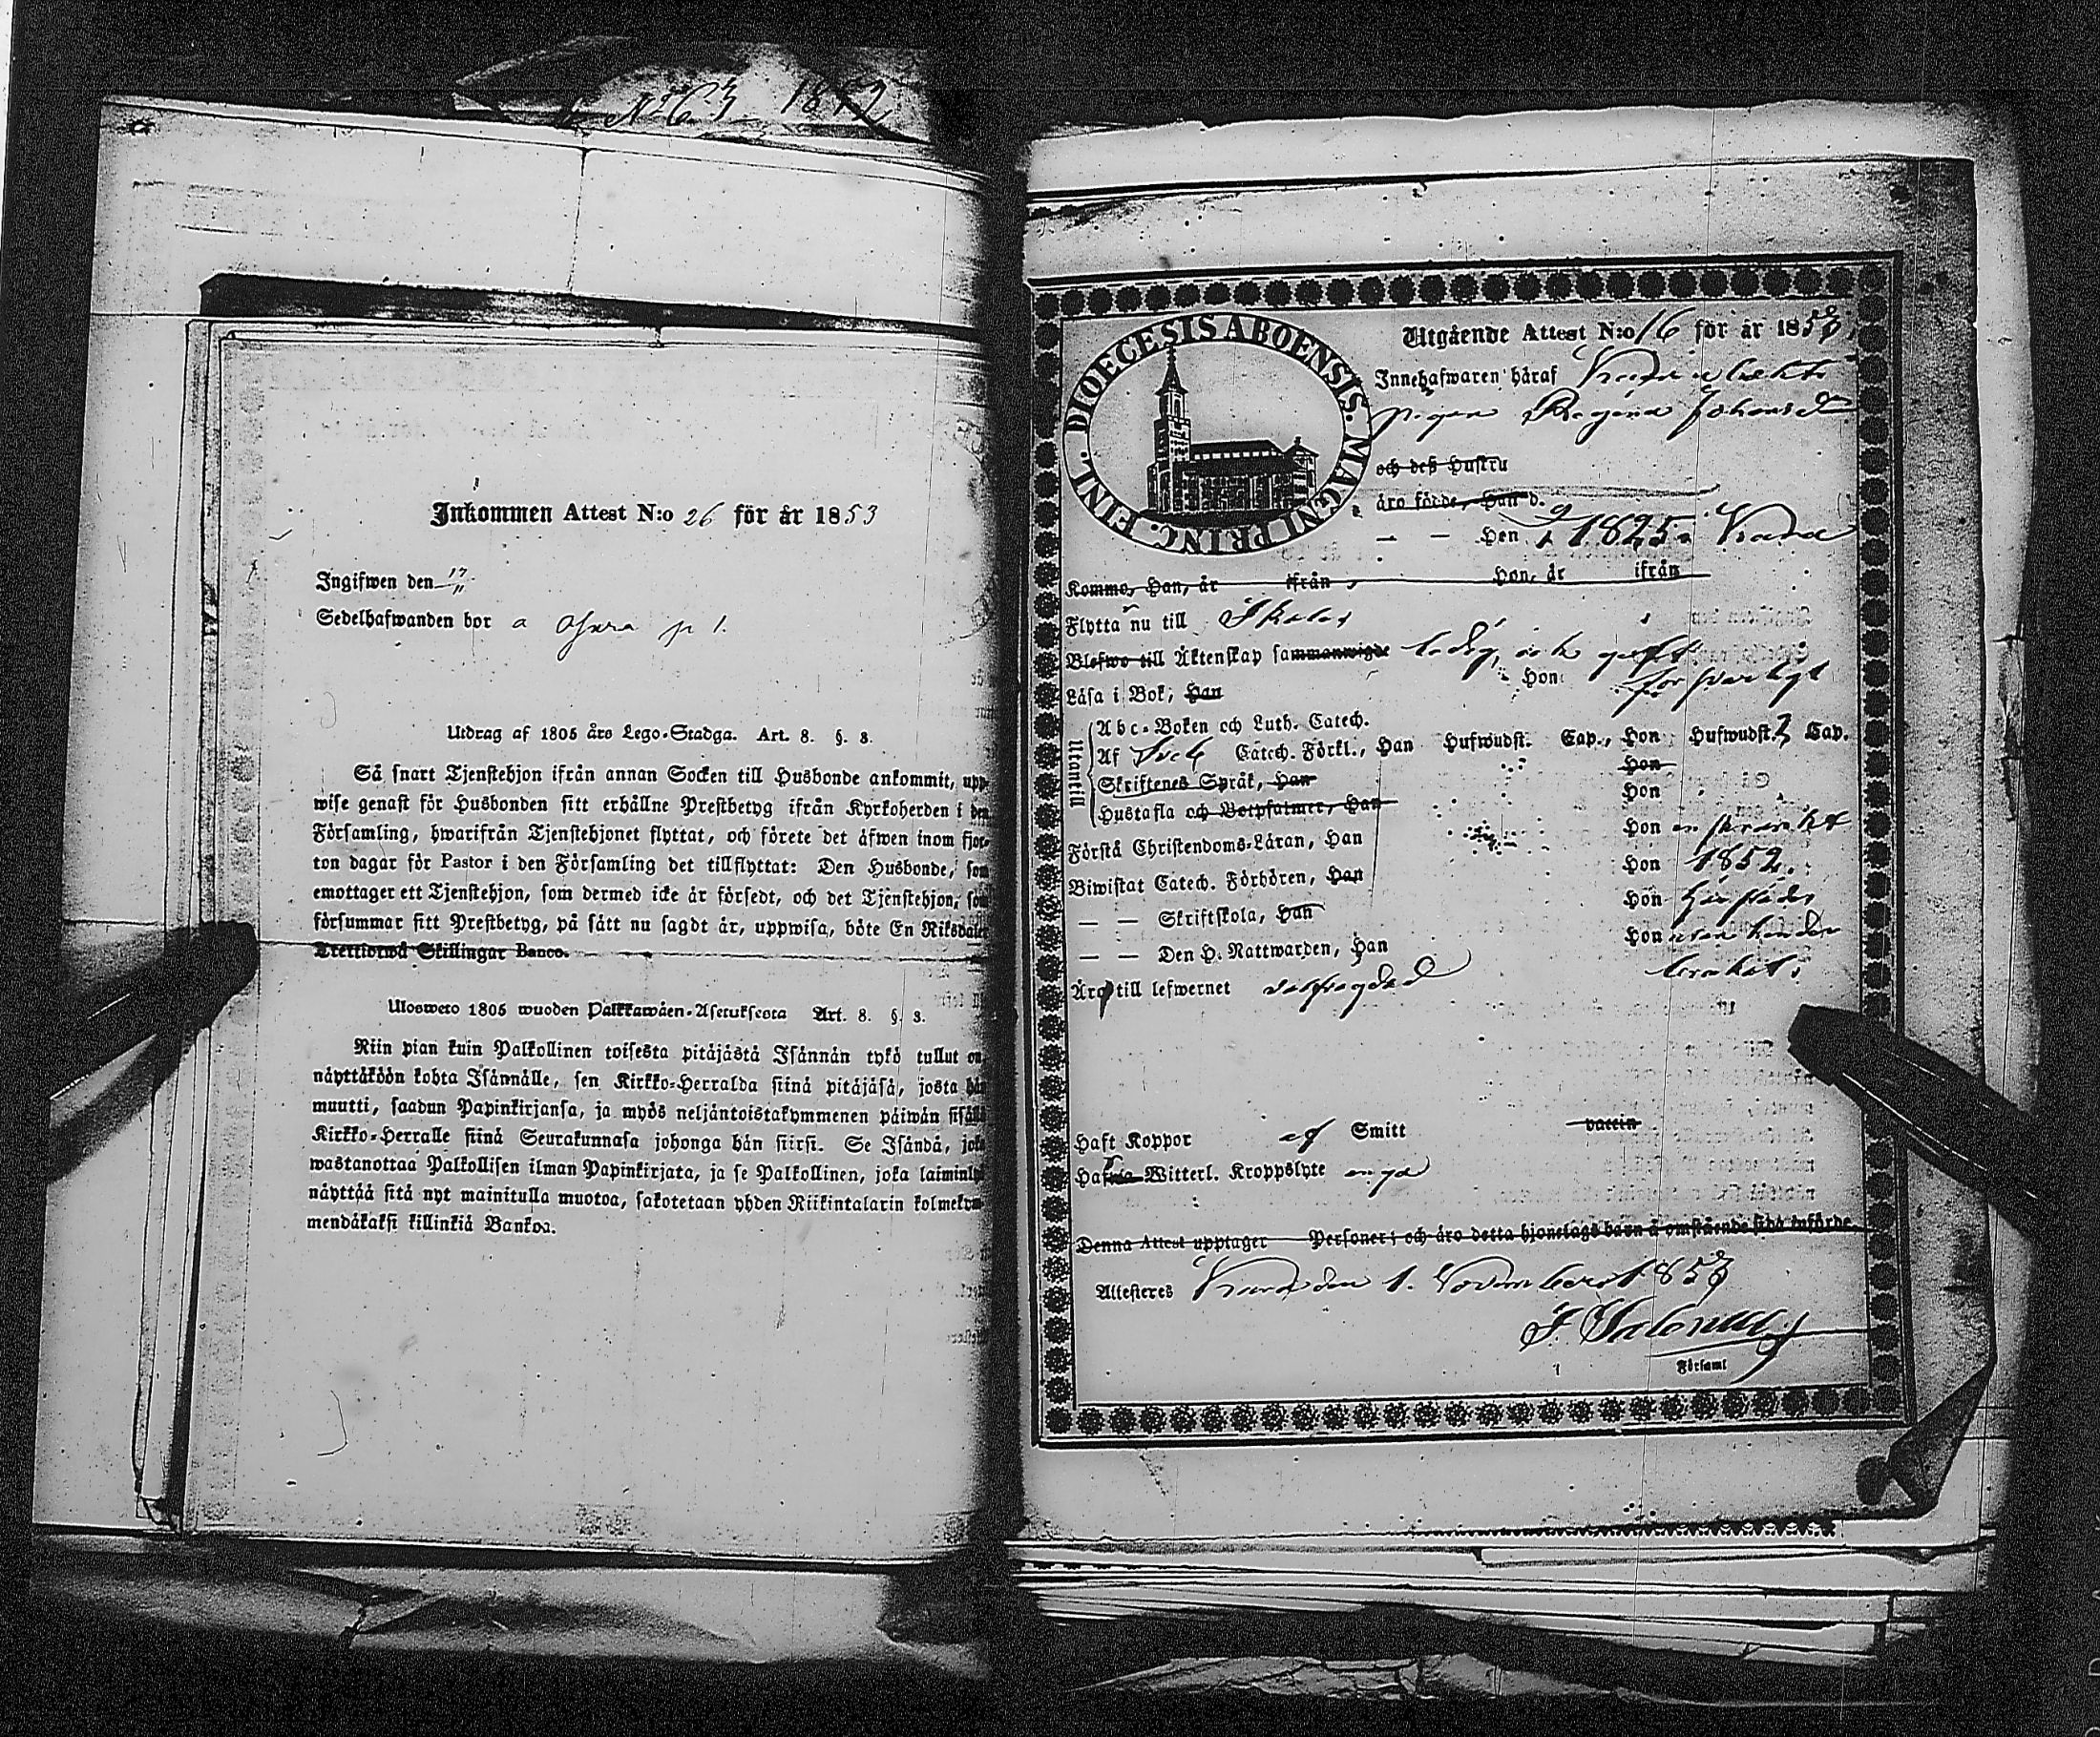 N:o 63 1852
Inkommen Attest N:o 26 för år 1853
Ingifwen den 17/11
Sedelhafwanden bor
Utdrag af 1805 års Lego-Stadga. Art. 8. §. 8.
Så snart Tjenstehjon ifrån annan Socken till Husbonde ankommit, upp-
wise genast för Husbonden sitt erhållne Prestbetyg ifrån Kyrkoherden i den
Församling, hwarifrån Tjenstehjonet flyttat, och förete det äfwen inom fjor-
ton dagar för Pastor i den Församling det tillflyttat: Den Husbonde, som
emottager ett Tjenstehjon, som dermed icke är försedt, och det Tjenstehjon, som
försummar sitt Prestbetyg, på sätt nu sagdt är, uppwisa, böte En Riksdaler
Trettiotwå Skillingar Banco.
Ulosweto 1805 wuoden Palkkawäen-Asetuksesta Art. 8. §. 8.
Niin pian kuin Palkollinen toisesta pitäjästä Isännän tykö tullut on
näyttäköön kohta Isännälle, sen Kirkko-Herralda siinä pitäjäsä, josta hän
muutti, saadun Papinkirjansa, ja myös neljäntoistakymmenen päiwän sisällä
Kirkko-Herralle siinä Seurakunnasa johonga hän siirsi. Se Isändä, joka
wastanottaa Palkollisen ilman Papinkirjata, ja se Palkollinen, joka laiminlyö
näyttää sitä nyt mainitulla muotoa, sakotetaan yhden Riikintalarin kolmekym-
mendäkaksi killinkiä Bankoa.
DIOECESIS ABOENSIS. MAGNI PRINC. FINL.
Utgående Attest N:o 16 för år 1853.
Innehafwaren häraf
pigan Regina Johansd:r
och deß Hustru
äro födde, Han d.
— — Hon d. 1825 i
Komne, Han, år ifrån Hon, år ifrån
Flytta nu till
Blefwo till Äktenskap sammanwigde ledig och
Läsa i Bok, Han Hon försvarligt
Utantill
Abc-Boken och Luth. Catech.
Af Catech. Förkl., Han Hufwudst. Cap., Hon Hufwudst. Cap.
Skriftenes Språk, Han Hon
Hustafla och Botpsalmer, Han Hon
Förstå Christendoms-Läran, Han Hon
Biwistat Catech. Förhören, Han Hon 1852.
— — Skriftskola, Han Hon härstädes
— — Den H. Nattwarden, Han Hon
Äro till lefwernet
Haft Koppor ej Smitt vaccin
Hafwa Witterl. Kroppslyte
Denna Attest upptager Personer; och äro detta hjonelags barn å omstående sida införde.
Attesteres den 1. November 1853
Församl